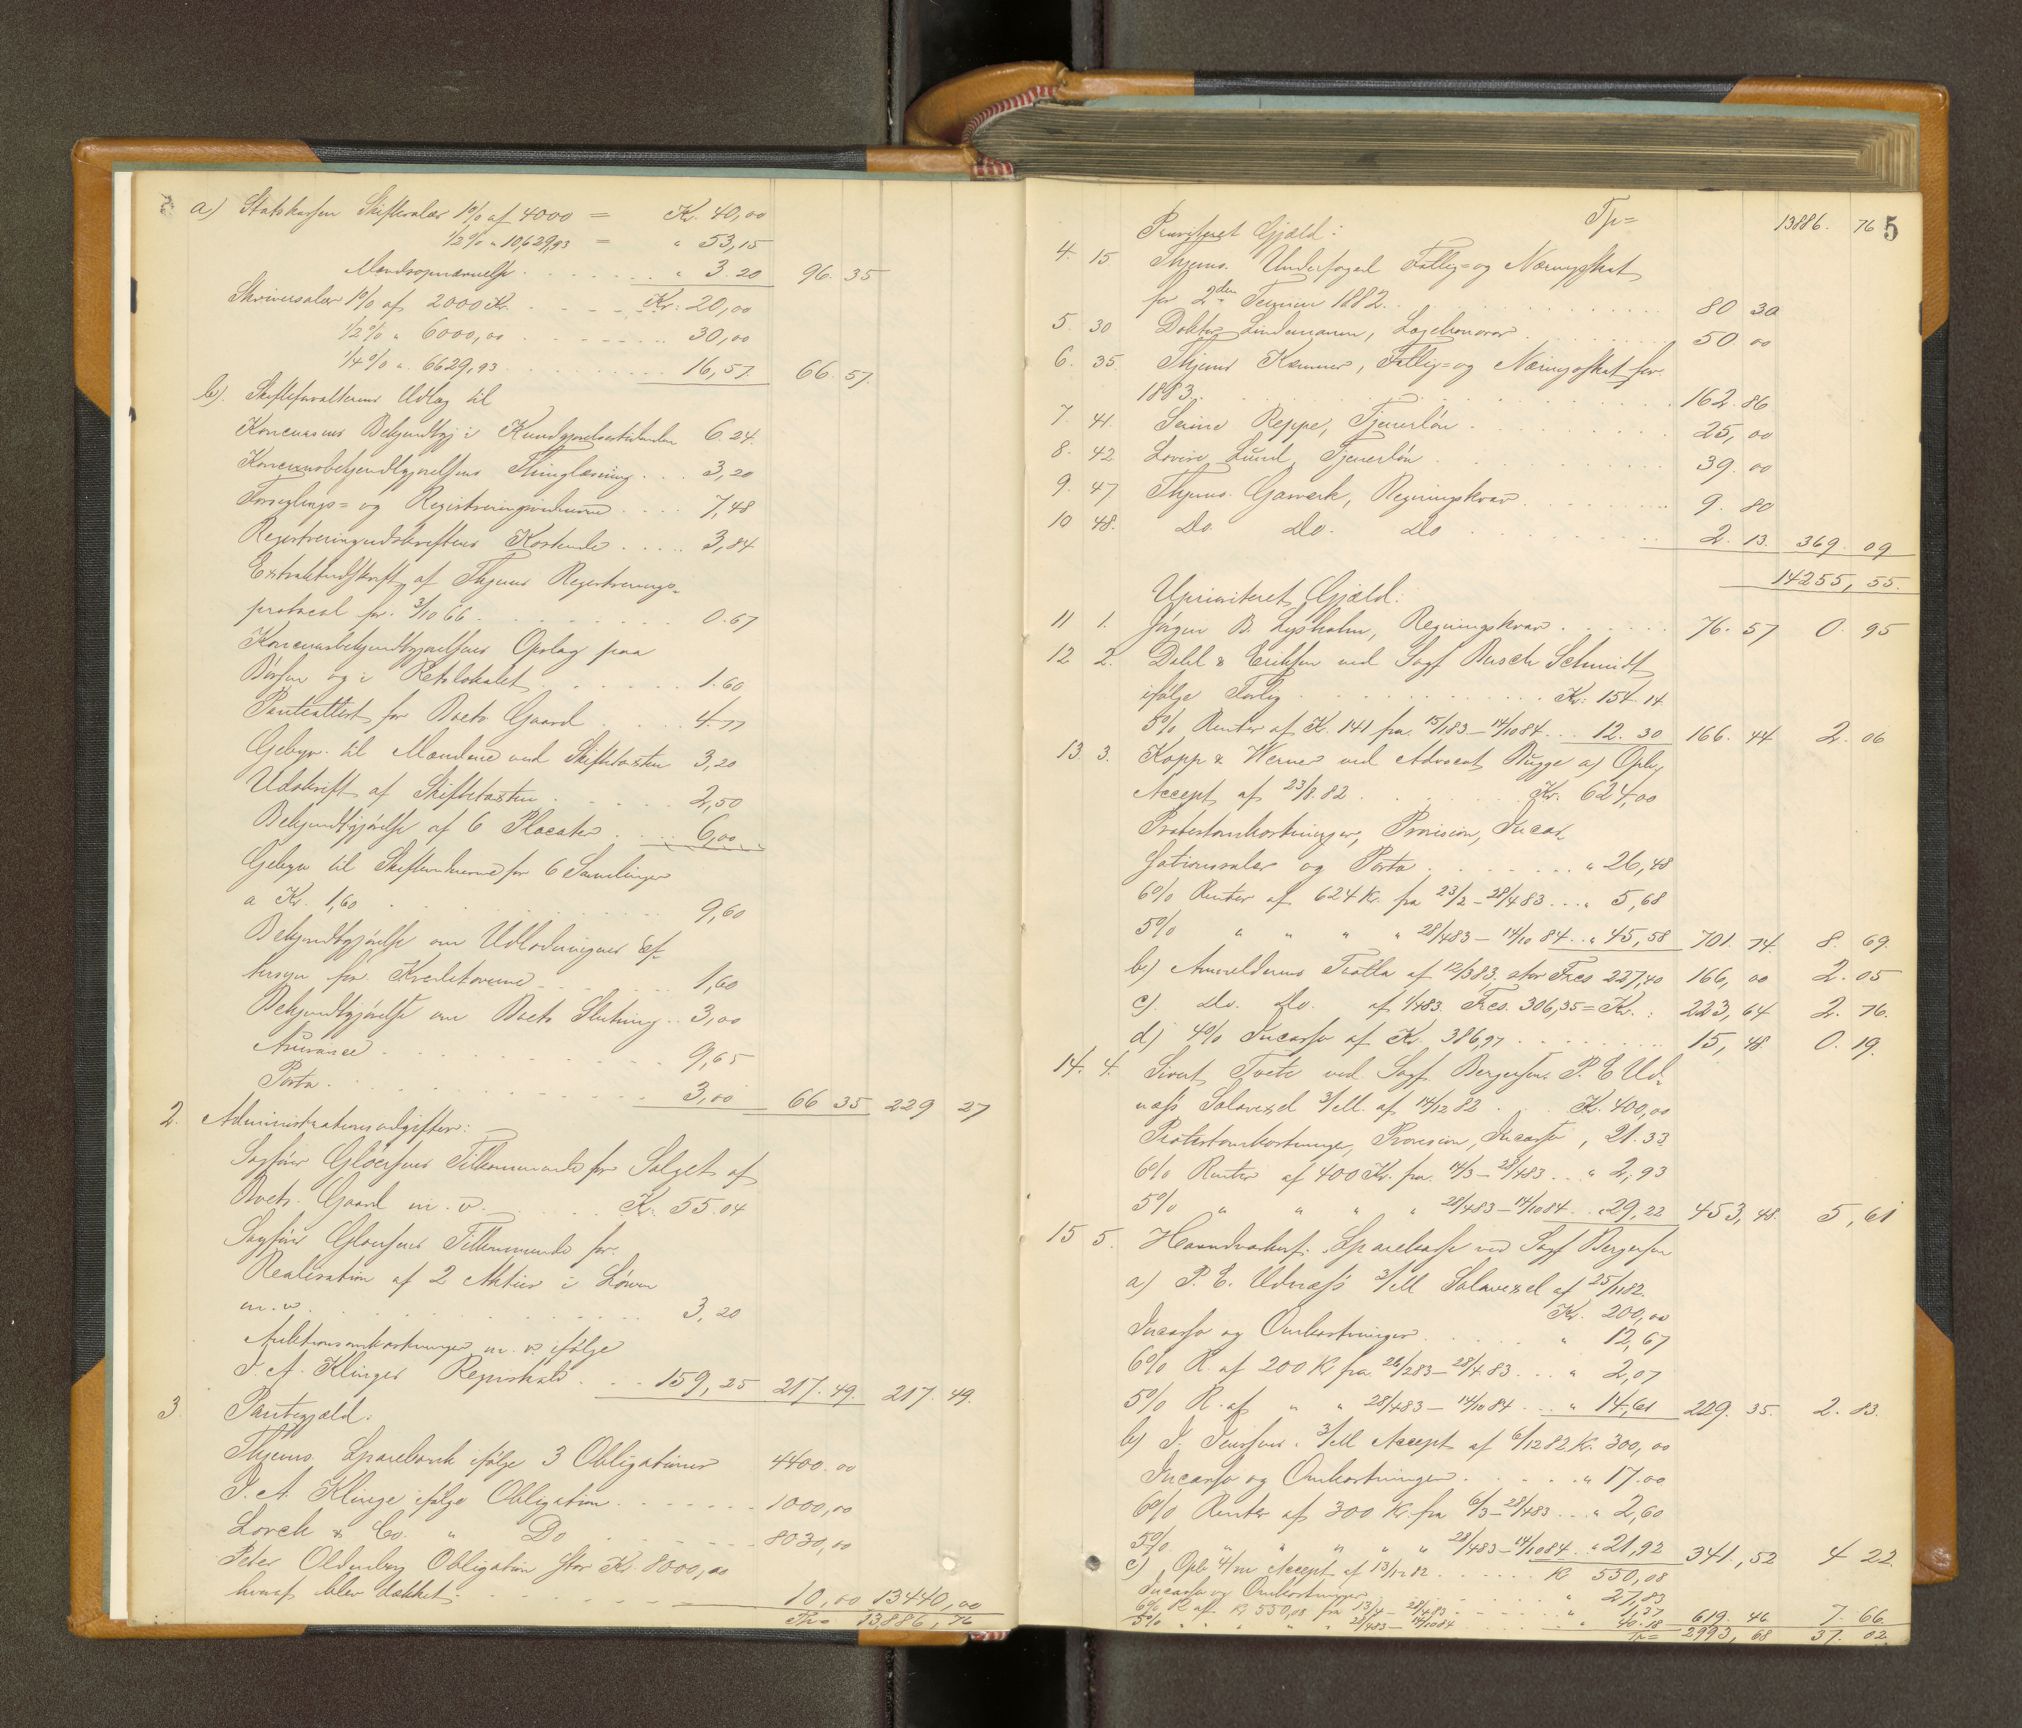 a) Statskassen Skiftesalær 1% af 4000 = Kr. 40,00
1/2% " 10,629,93 = " 53,15
Mandsopnævnelse " 3.20 96.35
Skriversalær 1% af 2000 Kr. Kr: 20,00
1/2% " 6000,00 30,00
1/4% " 6629,93 16,57. 66.57.
b). Skifteforvalterens Udlæg til
Konkursens Bekjendtgj i Kundgjørelsestidenden 6.24.
Konkursbekjendtgjørelsens Thinglæsning 3,20
Forseglings- og Registreringsvidnerne 7,48
Registreringsudskriftens Kostende 3,84
Extraktudskrift af Thjems Registrerings-
protocol for 3/10 66 0.67
Konkursbekjendtgjørelsens Opslag paa
Børsen og i Retslokalet 1.60
Panteattest for Boets Gaard 4.77
Gebyr til Mændene ved Skiftetaxten 3,20
Udskrift af Skiftetaxten 2,50
Bekjendtgjørelse af 6 Placater 6,00
Gebyr til Skiftevidnerne for 6 Samlinger
a Kr. 1,60 9,60
Bekjendtgjørelse om Udlodningens Ef-
tersyn for Kreditorerne 1,60
Bekjendtgjørelse om Boets Slutning 3,00
Assurance 9,65
Porto 3,00 66 35 229 27
2. Administrationsudgifter:
Sagfører Gløersens Tilkommende for Salget af
Boets Gaard m. v. Kr. 55.04
Sagfører Gloersens Tilkommende for
Realisation af 2 Aktier i
m. v. 3,20
Auktionsomkostninger m. v. ifølge
J. A. Klinges Regnskab 159,25 217.49. 217.49.
3 Pantegjæld:
Thjems Sparebank ifølge 3 Obligationer 4400.00
J. A. Klinge ifølge Obligation 1000,00
Lorck & Co. " Do 8030,00
Peter Oldenborg Obligation stor Kr. 8000,00
hvoraf blev dækket 10,00 13440,00
Tr= 13,886,76
5
Tr= 13886. 76
Privriteret Gjæld:
4. 15 Thjems Underfoged Fattig- og Næringsskat
for 2den Termin 1882. 80 30
5. 30 Doktor Lindemann, Lægehonorar 50.00
6. 35. Thjems Kæmner, Fattig- og Næringsskat for
1883 162.86
7. 41. Serine Reppe, Tjenerløn 25,00
8. 42 Lovise Lund, Tjenerløn 39.00
9. 47 Thjems Gasverk, Regningskrav 9.80
10 48. Do. Do. Do 2.13. 369.09
14255,55.
Uprioriteret Gjæld:
11 1. Jørgen B. Lysholm, Regningskrav 76.57 0.95
12 2. Dahl & Eriksen ved Sagf Busch Schmidt
ifølge Forlig Kr: 154.14
5% Renter af Kr. 141 fra 15/1 83 - 14/10 84 12.30 166.44 2.06
13 3. Kopp & Werner ved Advocat Bugge a) Opb.
Accept af 23/8.82 Kr. 624,00
Protestomkostninger, Provision, Incas
sationssalær og Porto " 26,48
6% Renter af 624 Kr. fra 23/2 - 28/4 83 " 5,68
5% " " " " 28/4 83 - 14/10 84 " 45,58 701.74. 8.69.
b) Anmelderens Tratta af 12/3 83, stor Frcs 227,40 166,00 2.05
c). Do. Do. af 1/4 83. Frcs. 306,35 = Kr. 223,64 2.76.
d) 4% Incasso af Kr. 386,97 15,48 0.19.
14. 4. Sivert Tvete ved Sagf Bergersen. P. E. Ud-
næss Solavexel 3/M. af 14/12 82 Kr. 400,00
Protestomkostninger, Provision, Incasso, 21.33
6% Renter af 400 Kr. fra 14/3 - 28/4 83 " 2,93
5% " " " " 28/4 83 - 14/10 84 " 29,22 453,48. 5,61
15 5. Haandværkerf. Sparekasse ved Sagf Bergersen
a) P. E. Udnæss 3/M Solavexel af 25/11 82.
Kr. 200,00
Incasso og Omkostninger " 12,67
6% R. af 200 Kr fra 26/2 83 - 28/4 83 " 2,07
5% R. af " " 28/4 83 - 14/10 84 " 14,61 229.35. 2.83.
b) J. Jenssens 3/M Accept af 6/12 82 Kr. 300,00
Incasso og Omkostninger " 17.00
6% Renter af 300 Kr. fra 6/3 - 28/4 83 " 2,60
5% " " " " " 28/4 83 - 14/10 84 " 21,92 341,52 4 22.
c) Opb 4/m Accept af 13/12 82 Kr 550,08
Incasso og Omkostninger " 27,83
6% R af Kr 550,08 fra 13/4 - 28/4 83 " 1,37
5% " " " " 28/4 83 - 14/10 84 " 40.18 619.46 7.66.
Tr= 2993,68 37.02.